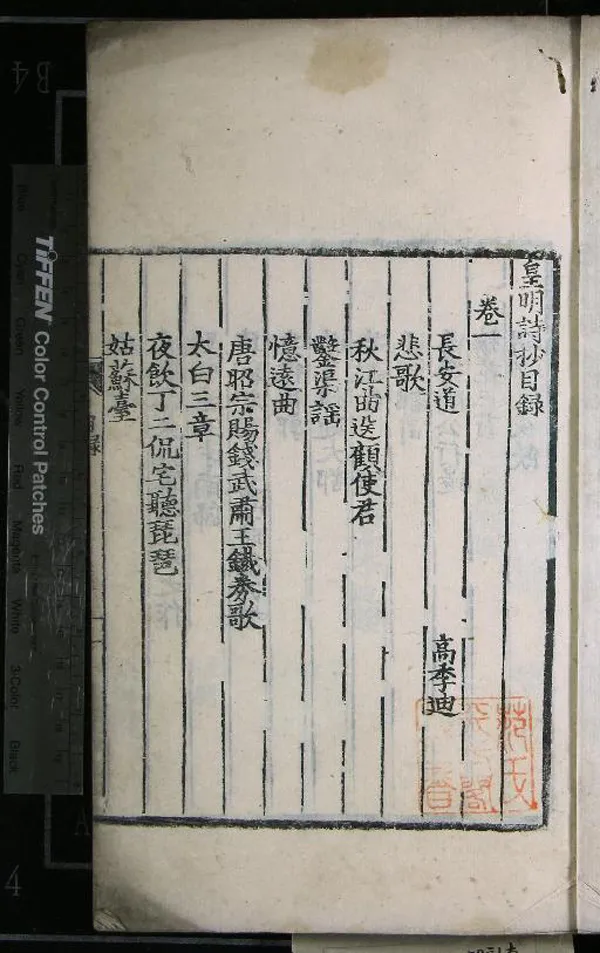 皇明詩抄目録
卷一
長安道 高季迪
悲歌
秋江曲送顧使君
鑿渠謡
憶遠曲
唐昭宗賜錢武肅王鐵劵歌
太白三章
夜飲丁二侃宅聽琵琶
姑蘇臺
目録
TIFFEN Color Control Patches
Blue Cyan Green Yellow Red Magenta White 3-Color Black
B4
A
4